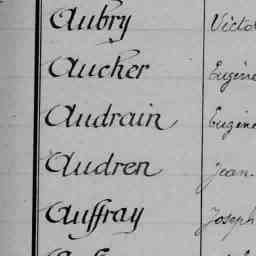 Aubry Victo
Aucher Eugène
Audrain Eugène
Audren Jean.
Auffray Joseph